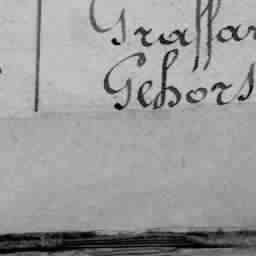 Graffar
Gehors